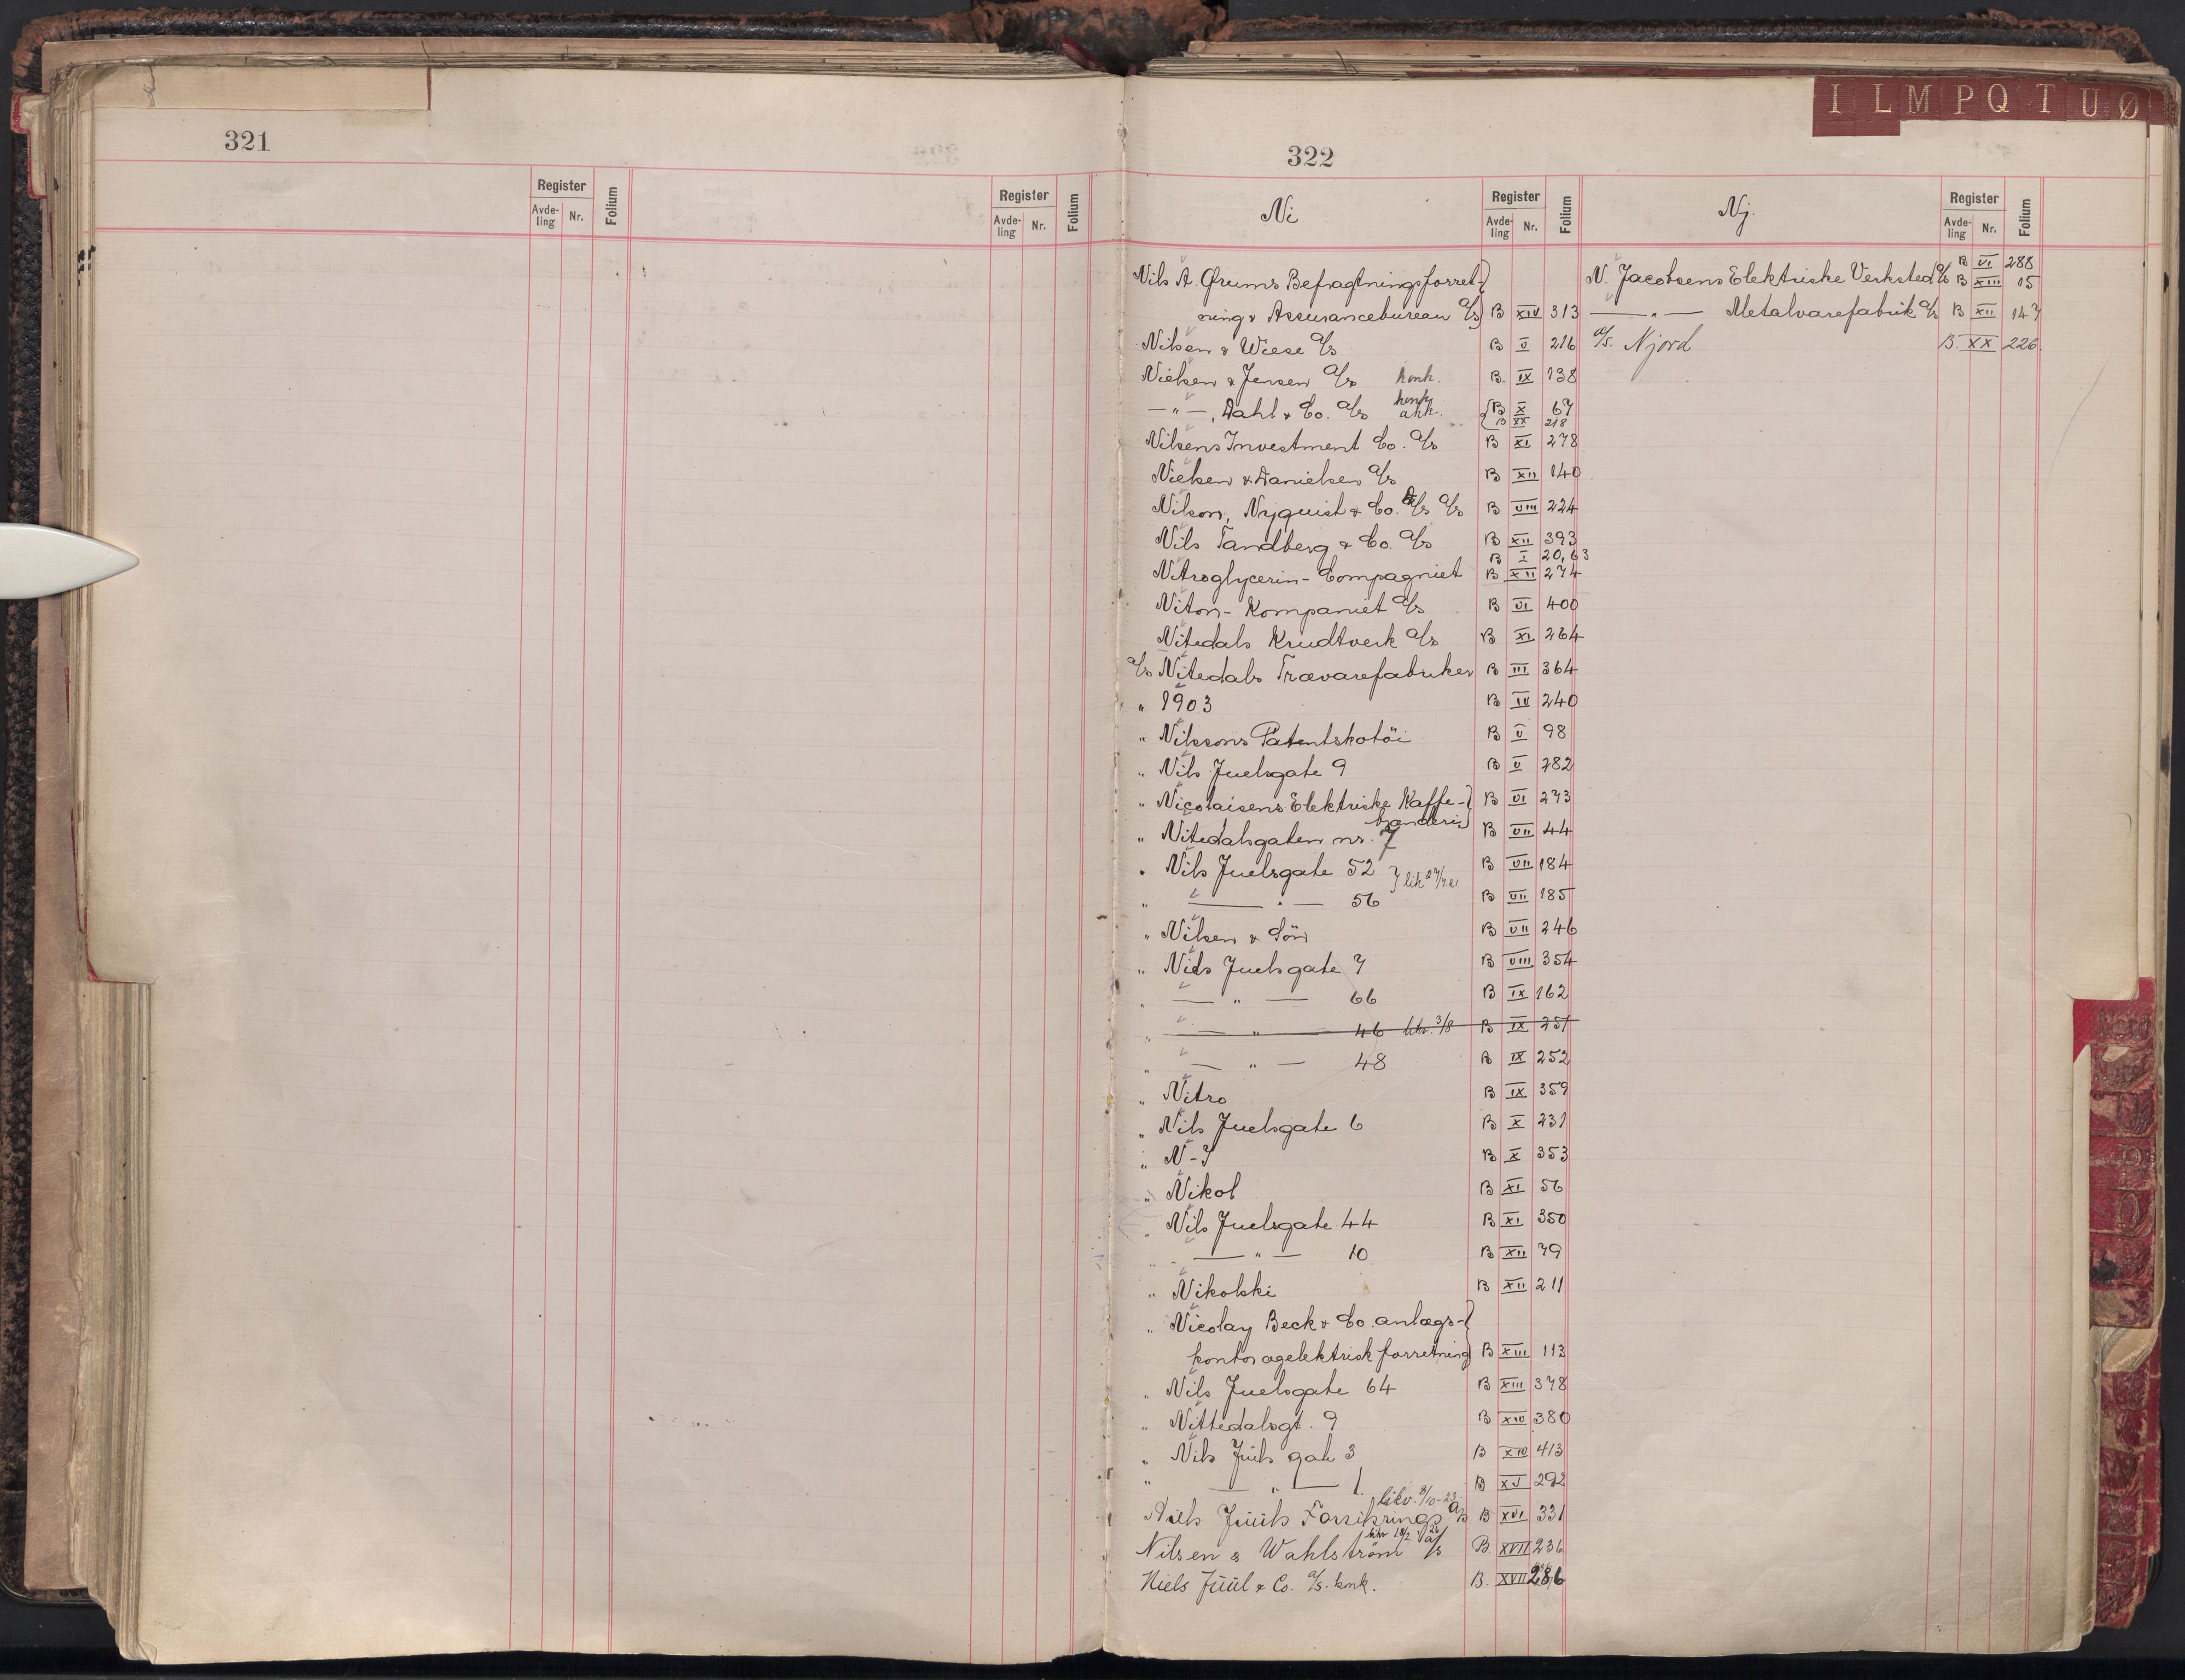 321
Register Folium Register Folium
Avdeling Nr. Avdeling Nr.
I L M P Q T U Ø
322
Ni Register Folium
Avdeling Nr.
Nils A. Ørums Befragtningsforret-
ning & Assurancebureau A/s B XIV 313
Nilsen & Wiese A/s B V 216
Nielsen & Jensen A/s konk. B. IX 138
— " —, Dahl & Co. A/s konk. akk. B X 67
B XX 218
Nilsens Investment Co. A/s B XI 278
Nielsen & Danielsen A/s B XII 140
Nilson, Nyquist & Co. A/s A/s B VIII 224
Nils Tandberg & Co. A/s B XII 393
B I 20, 63
Nitroglycerin-Compagniet B XII 274
Niton-Kompaniet A/s B VI 400
Nitedals Krudtverk A/s B XI 264
A/s Nitedals Trævarefabriker B III 364
" 1903 B IV 240
" Nilssons Patentskotöi B V 98
" Nils Juelsgate 9 B V 282
" Nicolaisens Elektriske Kaffe- B VI 273
brænderi
" Nitedalsgaten nr. 7 B VII 44
" Nils Juelsgate 52 B VII 184
" — " — 56 B VII 185
" Nilsen & Sön B VII 246
" Niels Juelsgate 7 B VIII 354
" — " — 66 B IX 162
" — " — 46 likv. 3/8 B IX 251
" — " — 48 B IX 252
" Nitro B IX 359
" Nils Juelsgate 6 B X 231
" N-I B X 353
" Nikol B XI 56
" Nils Juelsgate 44 B XI 350
" — " — 10 B XII 79
" Nikolski B XII 211
" Nicolay Beck & Co. anlægs-
kontor og elektrisk forretning B XIII 113
" Nils Juelsgate 64 B XIII 378
" Nittedalsgt. 9 B XIV 380
" Nils Juels gate 3 B XIV 413
" — " — 1. B XV 292
likv. 8/10-23
Niels Juuls Forsikrings A/s B XVI 331
Nilsen & Wahlström A/s B. XVII 236
Niels Juul & Co. A/s. konk. B. XVII 286
Nj. Register Folium
Avdeling Nr.
B VI 288
N. Jacobsens Elektriske Verksted A/s B XIII 15
— " — Metalvarefabrik A/s B XII 147
A/s. Njord B. XX 226